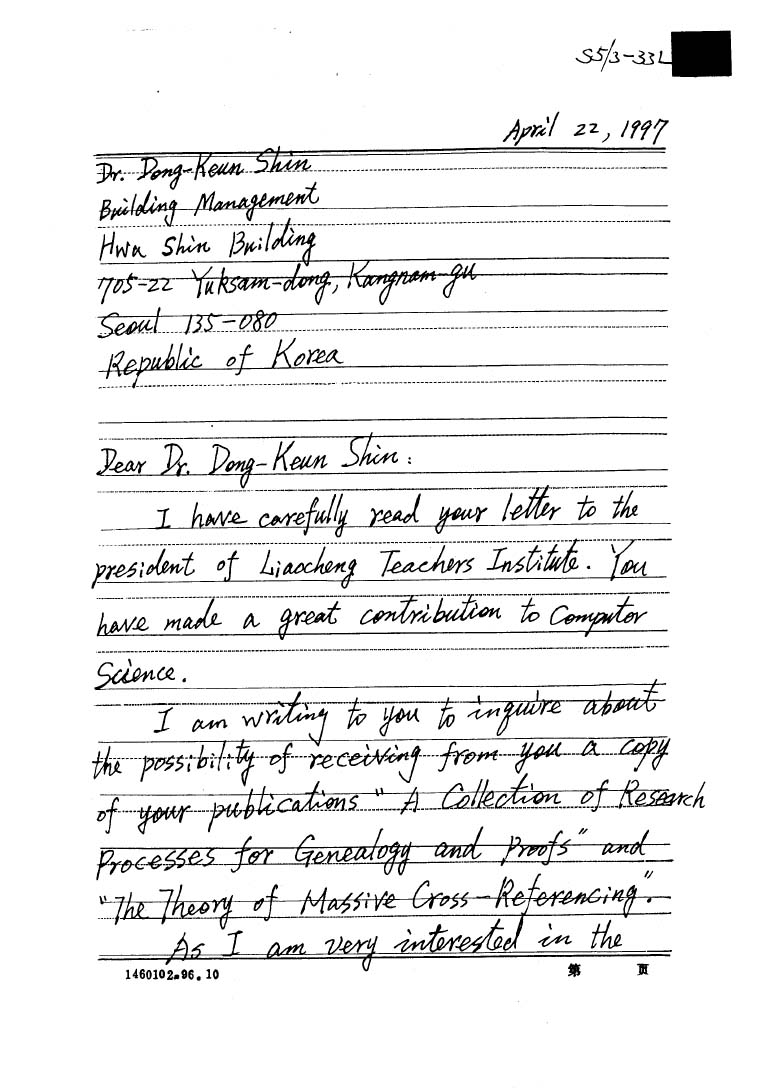 S5/3-33L
April 22, 1997
Dr. Dong-Keun Shin
Building Management
Hwa Shin Building
705-22 Yuksam-dong, Kangnam-gu
Seoul 135-080
Republic of Korea
Dear Dr. Dong-Keun Shin:
I have carefully read your letter to the
president of Liaocheng Teachers Institute. You
have made a great contribution to Computer
Science.
I am writing to you to inquire about
the possibility of receiving from you a copy
of your publications "A Collection of Research
Processes for Genealogy and Proofs" and
"The Theory of Massive Cross-Referencing".
As I am very interested in the
1460102-96.10 第 页